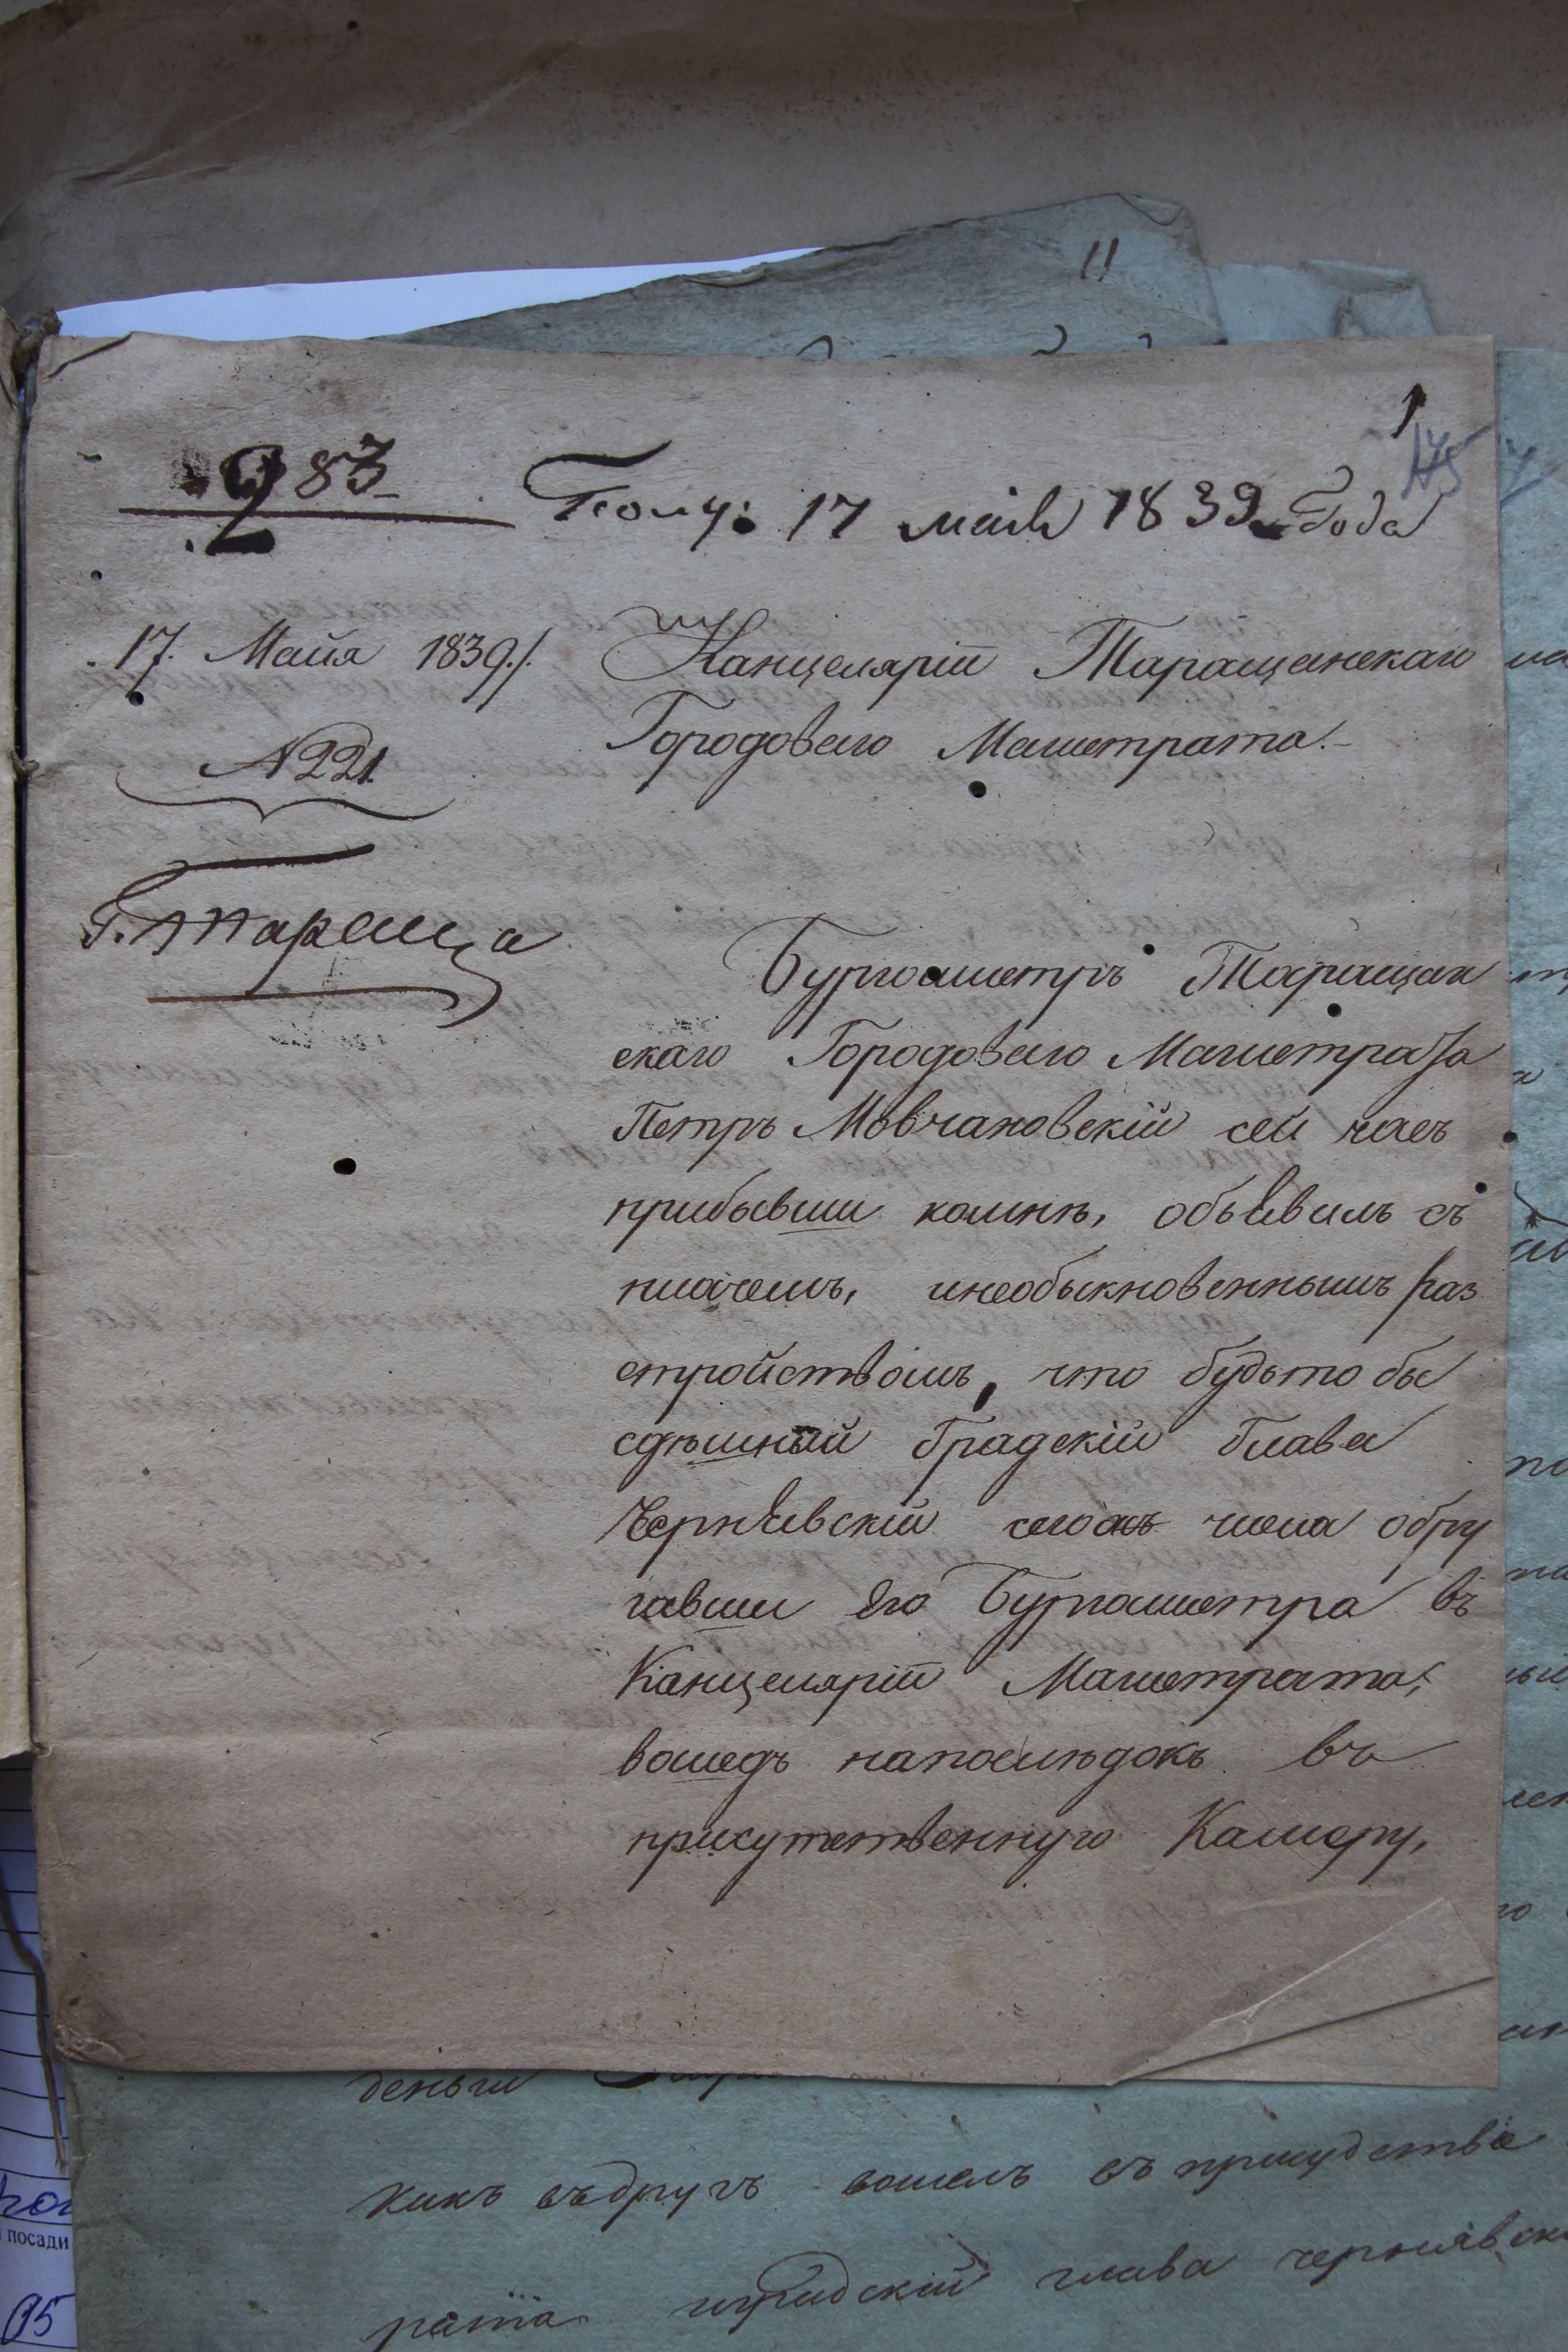 11
1
283
2
Полу: 17 маія 1839 Года
17. Майя 1839./.
N 221.
Г. Тараща
Канцеляріи Таращанскаго
Городоваго Магистрата.-
Бургомистръ Таращан
скаго Городоваго Магистрата
Петръ Мовчановскій сей часъ
прибывши комнѣ, объявилъ съ
плачемъ, инеобыкновеннымъ раз
стройствомъ, что будьто бы
сдѣшный Градскій Глава
Чернявскій сегожъ числа обру
гавши Его Бургомистра въ
Канцеляріи Магистрата,
вошедъ напослѣдокъ въ
присутственную Камеру,
деньги
какъ въдругъ вошелъ въ присудствіе
рата градскій глава чернявск
посади
05